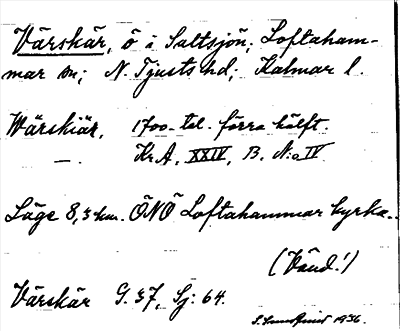 Värskär, ö i Saltsjön; Loftaham-
mar sn; N. Tjusts hd; Kalmar l.
Wärskiär, 1700-tal. förra hälft.
—. Kr.A, XXIV, B. N:o IV
Läge 8,3 km. ÖNÖ Loftahammar kyrka.
(Vänd!)
Värskär G. 37, Sj: 64.
1936.